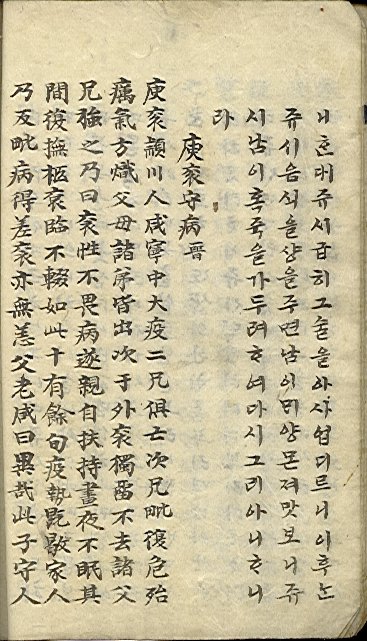 ᄒᆞᆫ대쥬시급히그술을아사업디르니이후ᄂᆞᆫ
쥬시음식을샹을주면남이ᄆᆡ양몬져맛보니쥬
시남이혹죽을가두려ᄒᆞ여다시그리아니ᄒᆞ니
라
庾衮守病晋
庾衮潁川人咸寧中大疫二兄俱亡次兄毗復危殆
癘氣方熾父母諸弟皆出次于外衮獨留不去諸父
兄強之乃曰衮性不畏病遂親自扶持晝夜不眠其
間復撫柩哀臨不輟如此十有餘旬疫勢旣歇家人
乃反毗病得差衮亦無恙父老咸曰異哉此子守人